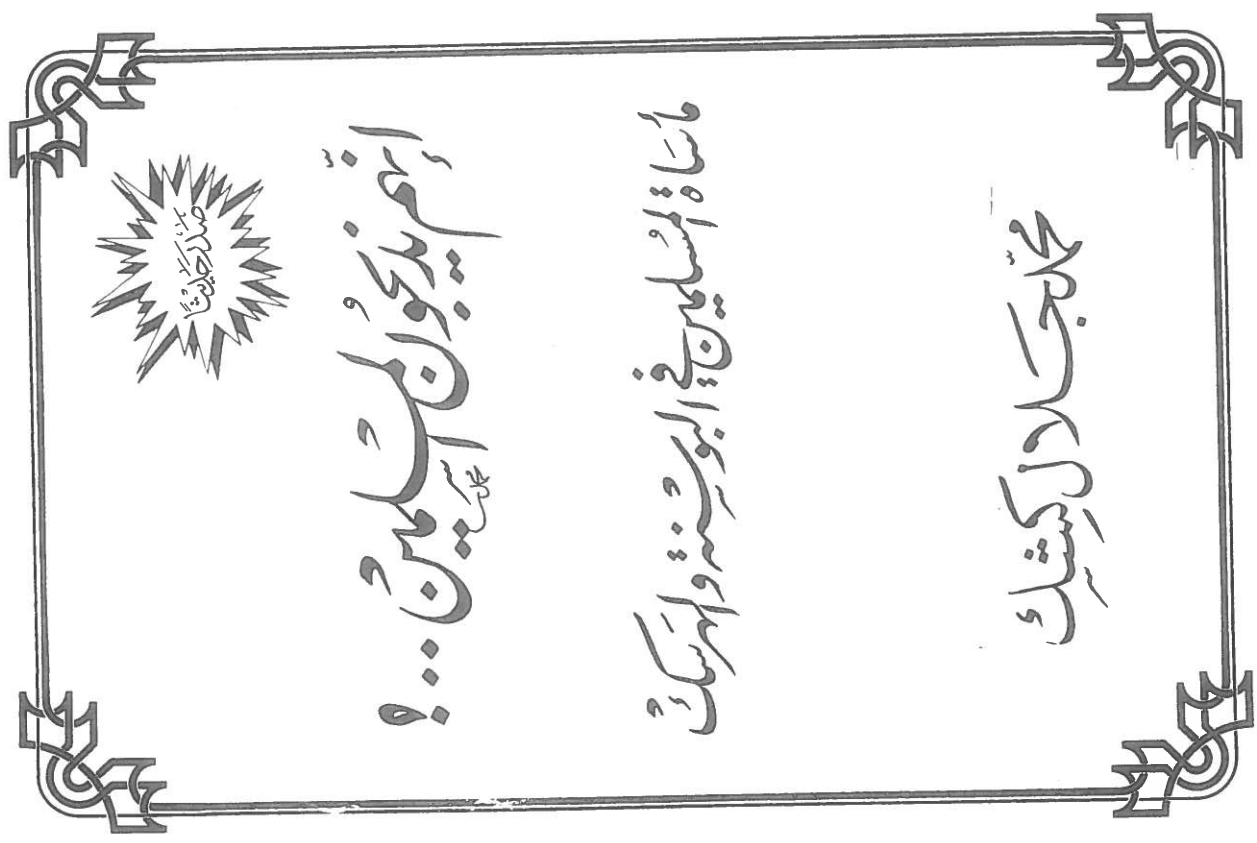 صدر حديثًا
إنّهم يذبحون المسلمين ..!
مأساة المسلمين في البوسنة والهرسك
محمّد جلال كشك